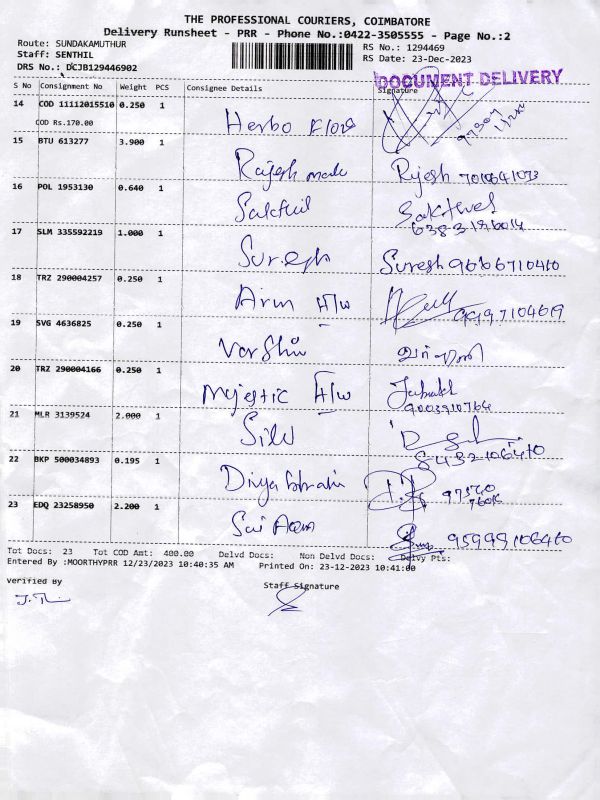 THE PROFESSIONAL COURIERS, COIMBATORE
Delivery Runsheet - PRR - Phone No.:0422-3505555 - Page No.:2
Route: SUNDAKAMUTHUR
Staff: SENTHIL
DRS No.: DCJB129446902
RS No.: 1294469
RS Date: 23-Dec-2023
DOCUMENT DELIVERY
S No Consignment No Weight PCS Consignee Details Signature
14 COD 11112015510 0.250 1 Herbo
COD Rs.170.00
15 BTU 613277 3.900 1 Rajesh Rajesh
16 POL 1953130 0.640 1 Sakthil Sakthivel
17 SLM 335592219 1.000 1 Suresh Suresh 9666710410
18 TRZ 290004257 0.250 1 Arun H/w
19 SVG 4636825 0.250 1 Varshini வர்ஷினி
20 TRZ 290004166 0.250 1 Majestic H/w
9003910764
21 MLR 3139524 2.000 1
22 BKP 500034893 0.195 1 Divya bharathi
23 EDQ 23258950 2.200 1 Sai
Tot Docs: 23 Tot COD Amt: 400.00 Delvd Docs: Non Delvd Docs: Delvy Pts:
Entered By :MOORTHYPRR 12/23/2023 10:40:35 AM Printed On: 23-12-2023 10:41:00
Verified By Staff Signature